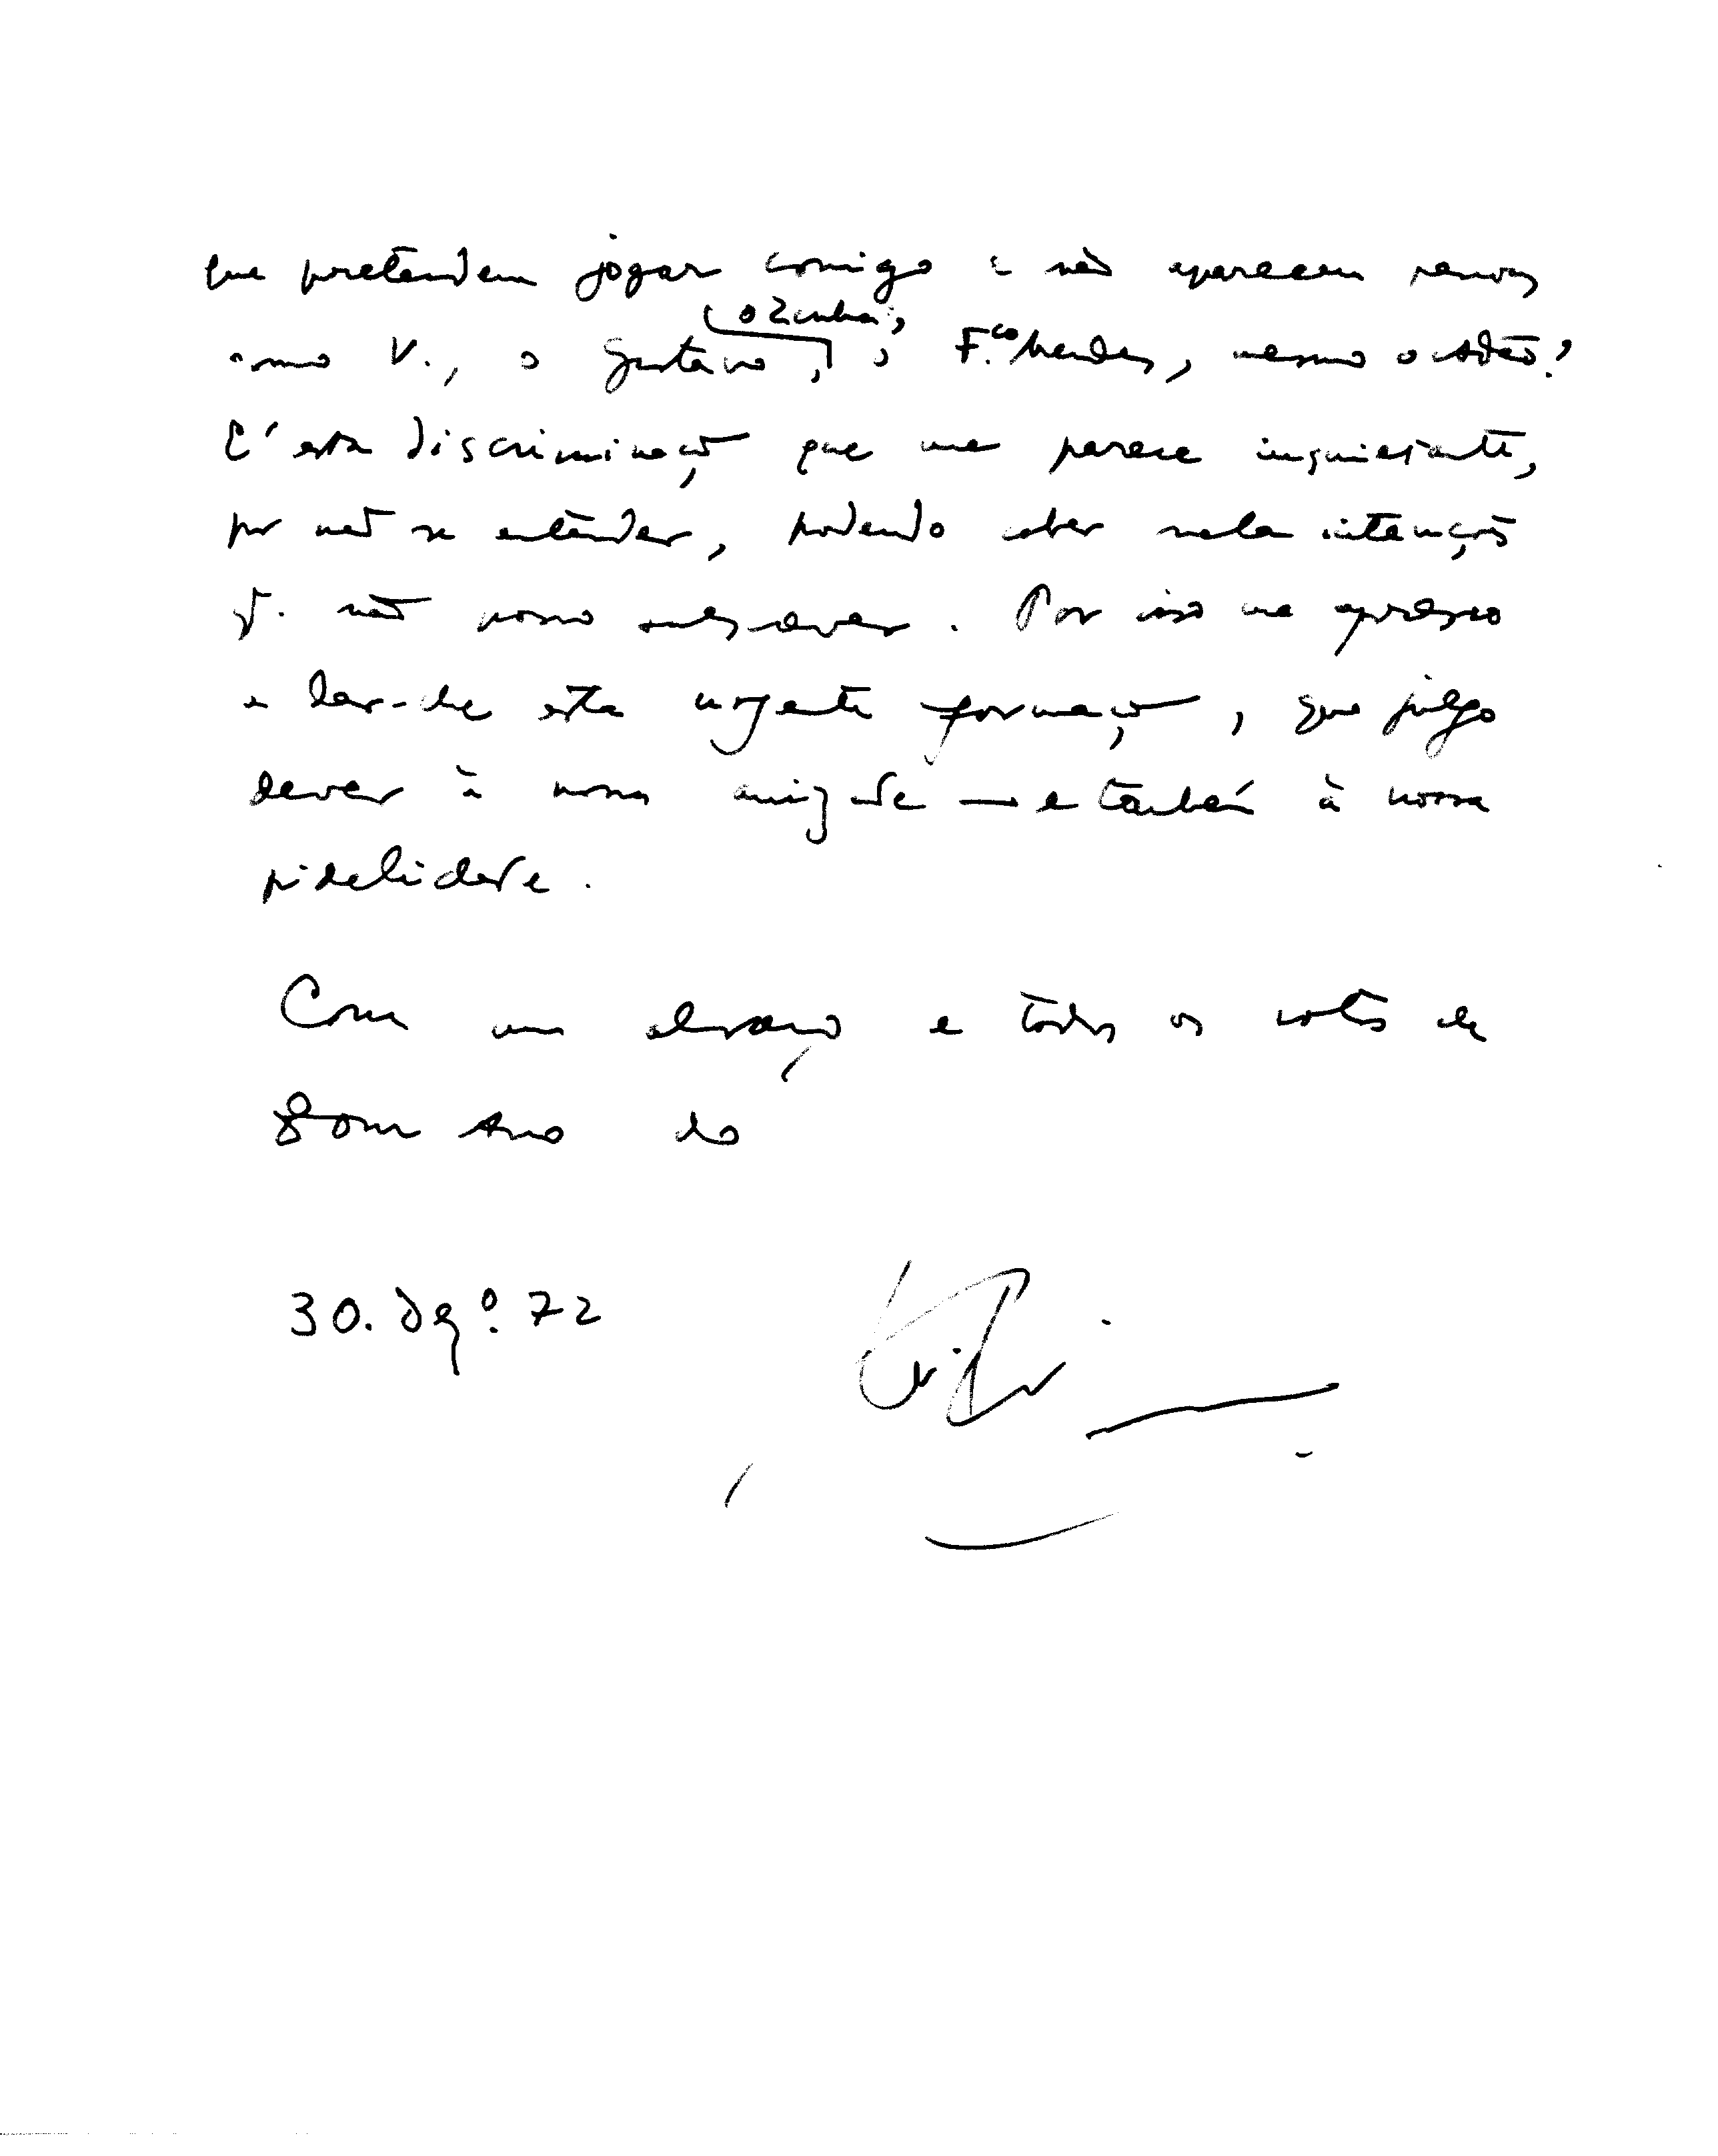 que pretendem jogar comigo e não aparecem nomes
o Zenha,
como V., o Gustavo, o F.co Mendes, mesmo o Adão?
É esta discriminação que me parece inquietante,
por não se entender, podendo caber nela intenções
q. não posso subscrever. Por isso me apresso
a dar-lhe esta urgente informação, que julgo
dever à nossa amizade — e também à nossa
fidelidade.
Com um abraço e todos os votos de
Bom Ano do
30. Dezº. 72